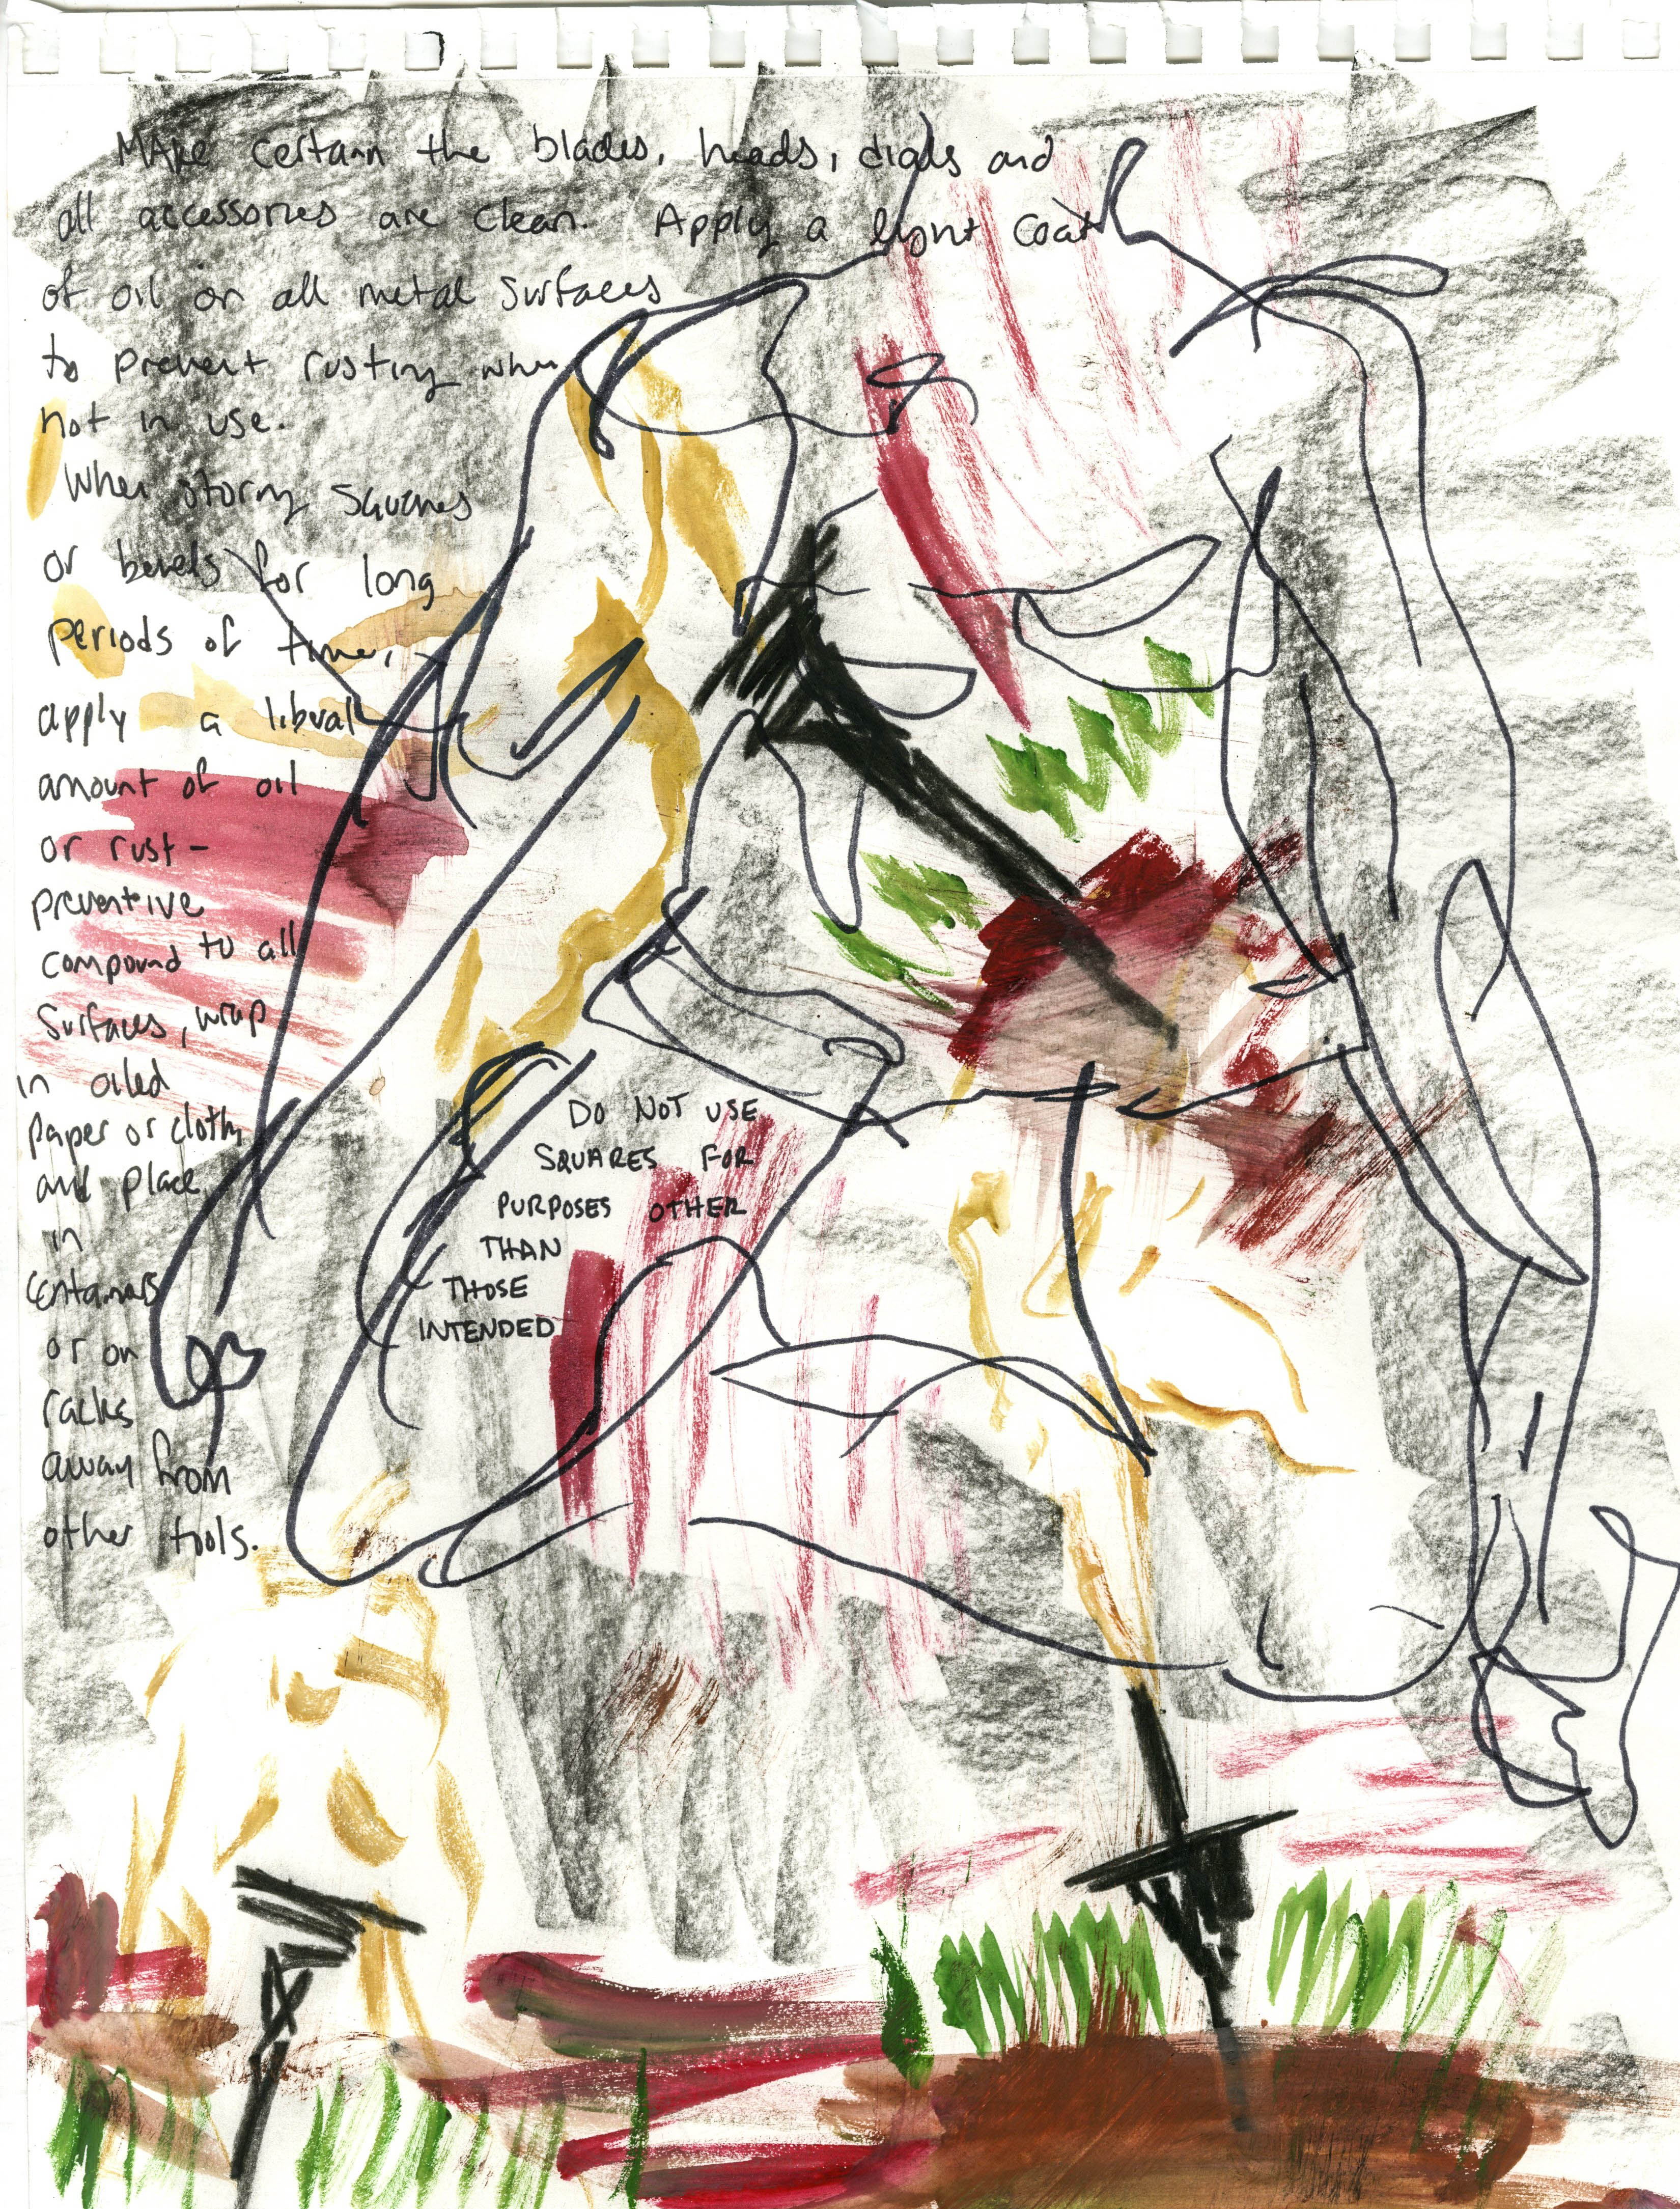 MAke certain the blades, heads, dials and
all accessories are clean. Apply a light coat
of oil on all metal surfaces
to prevent rusting when
not in use.
When storing squares
or bevels for long
periods of time,
apply a liberal
amount of oil
or rust-
preventive
compound to all
surfaces, wrap
in oiled
paper or cloth,
and place
in
containers
or on
racks
away from
other tools.
DO NOT USE
SQUARES FOR
PURPOSES OTHER
THAN
THOSE
INTENDED